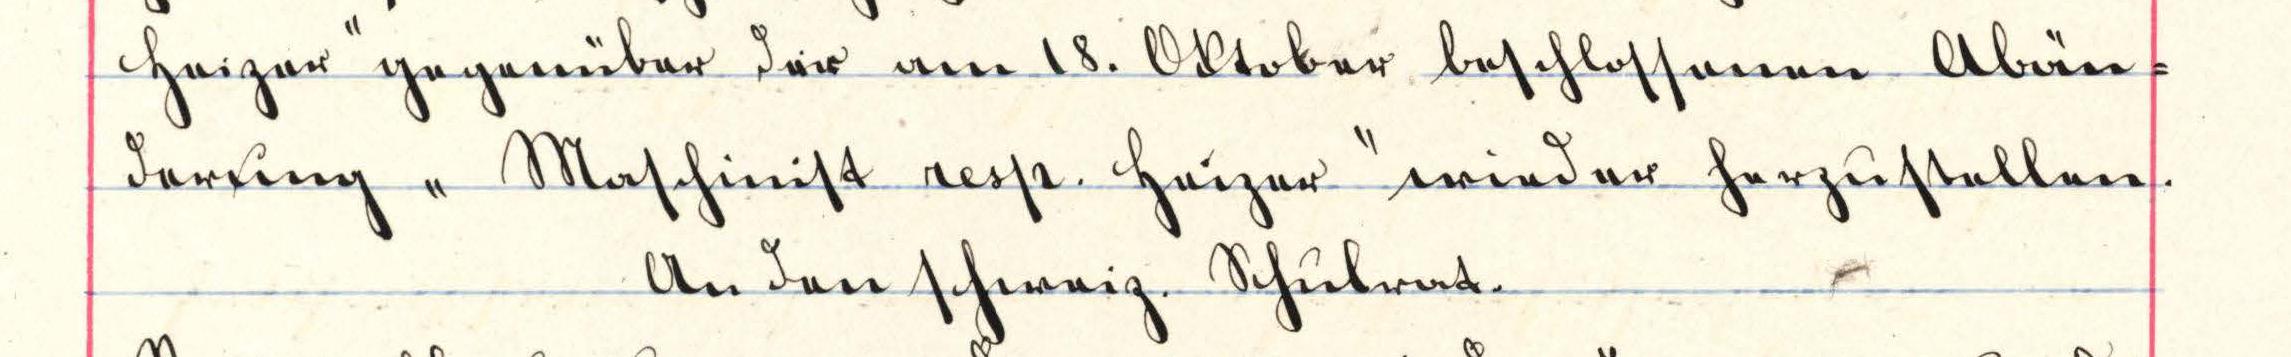 Heizer" gegenüber der am 18. Oktober beschlossenen Abän=
derung „ Maschinist resp. Heizer" wieder herzustellen.
An den schweiz. Schulrat.